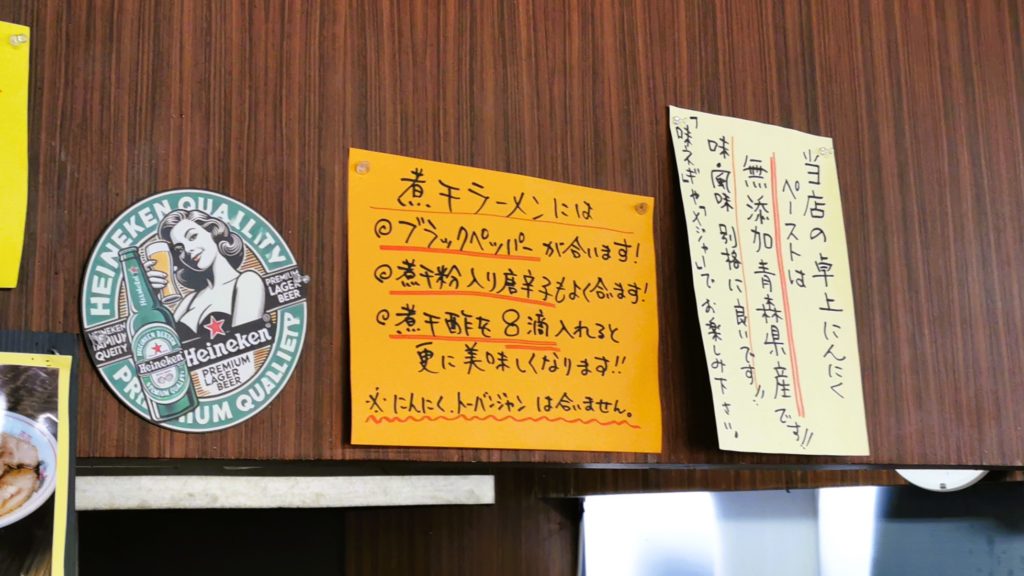 HEINEKEN QUALLITY
PREMIUM
LAGER
BEER
Heineken
Heineken
PREMIUM
LAGER
BEER
煮干ラーメンには
@ブラックペッパーが合います!
@煮干粉入り唐辛子もよく合ます!
@煮干酢を8滴入れると
更に美味しくなります!!
※にんにく、トーバンジャンは合いません。
当店の卓上にんにく
ペーストは
無添加青森県産です!!
味・風味 別格に良いです!!
「味ネギ」や「メンジャー」でお楽しみ下さい。